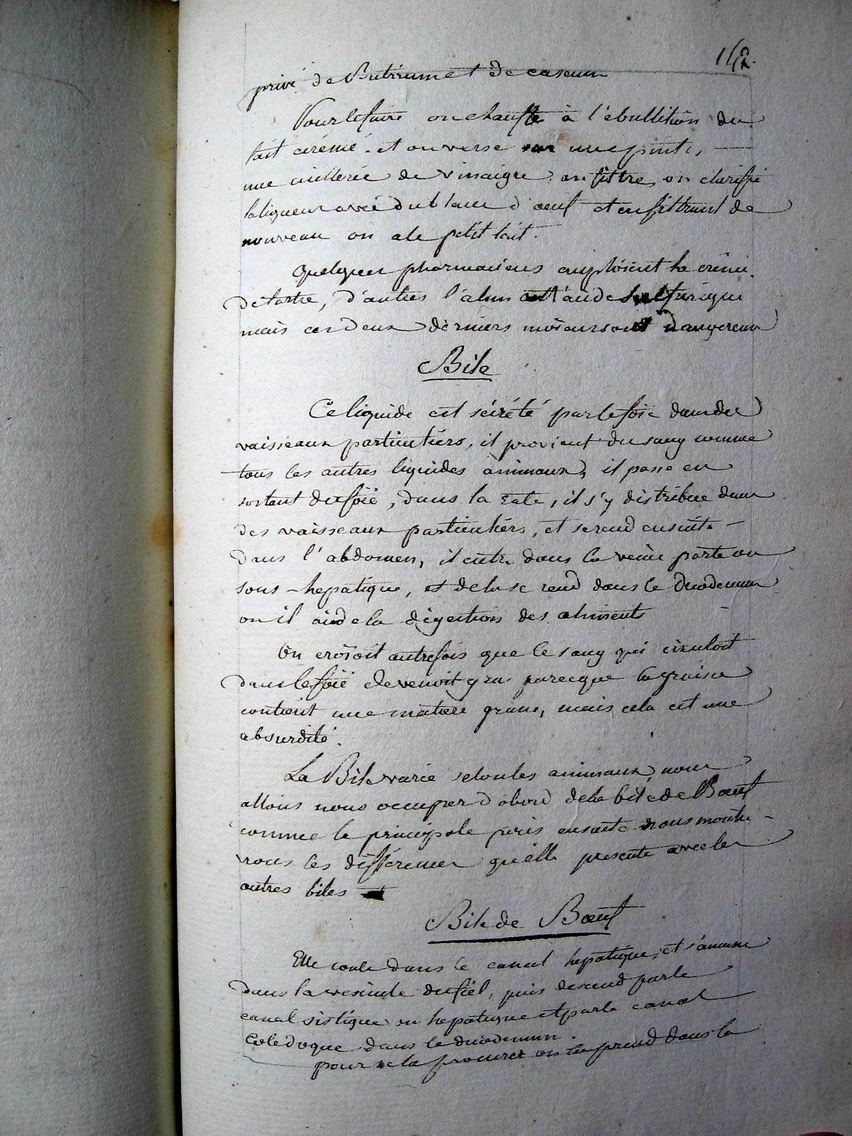 142.
privé de Butirum et de caseum
Pour le faire on chauffe à l'ébullition du
lait crémé. et on verse sur une pinte,
une cuillerée de vinaigre. on filtre, on clarifie
la liqueur avec du blanc d'oeuf et en filtrant de
nouveau on a le petit lait.
Quelques pharmaciens emploient la crême
de tartre, d'autres l'alun et l'acide sulfurique
mais ces deux derniers moïens sont dangereux
Bile
Ce liquide est sécrété par le foie dans des
vaisseaux particuliers, il provient du sang comme
tous les autres liquides animaux, il passe en
sortant du foïe, dans la rate, il s'y distribue dans
des vaisseaux particuliers, et se rend ensuite
dans l'abdomen, il entre dans la veine porte ou
sous-hepatique, et de la se rend dans le Duodenum
ou il aide la digestion des aliments
On croïoit autrefois que le sang qui circuloit
dans le foïe devenoit gras parceque la graisse
contient une matiere grasse, mais cela est une
absurdité.
La Bile varie selon les animaux, nous
allons nous occuper d'abord de la bile de Boeuf
comme la principale puis ensuite nous montre-
rons les différences qu'elle presente avec les
autres biles
Bile de Boeuf
Elle coule dans le canal hepatique, et s'amasse
dans la vesicule du fiel, puis descend par le
canal sistique ou hepatique et par le canal
Colédoque dans le duodenum.
pour se la procurer on la prend dans la